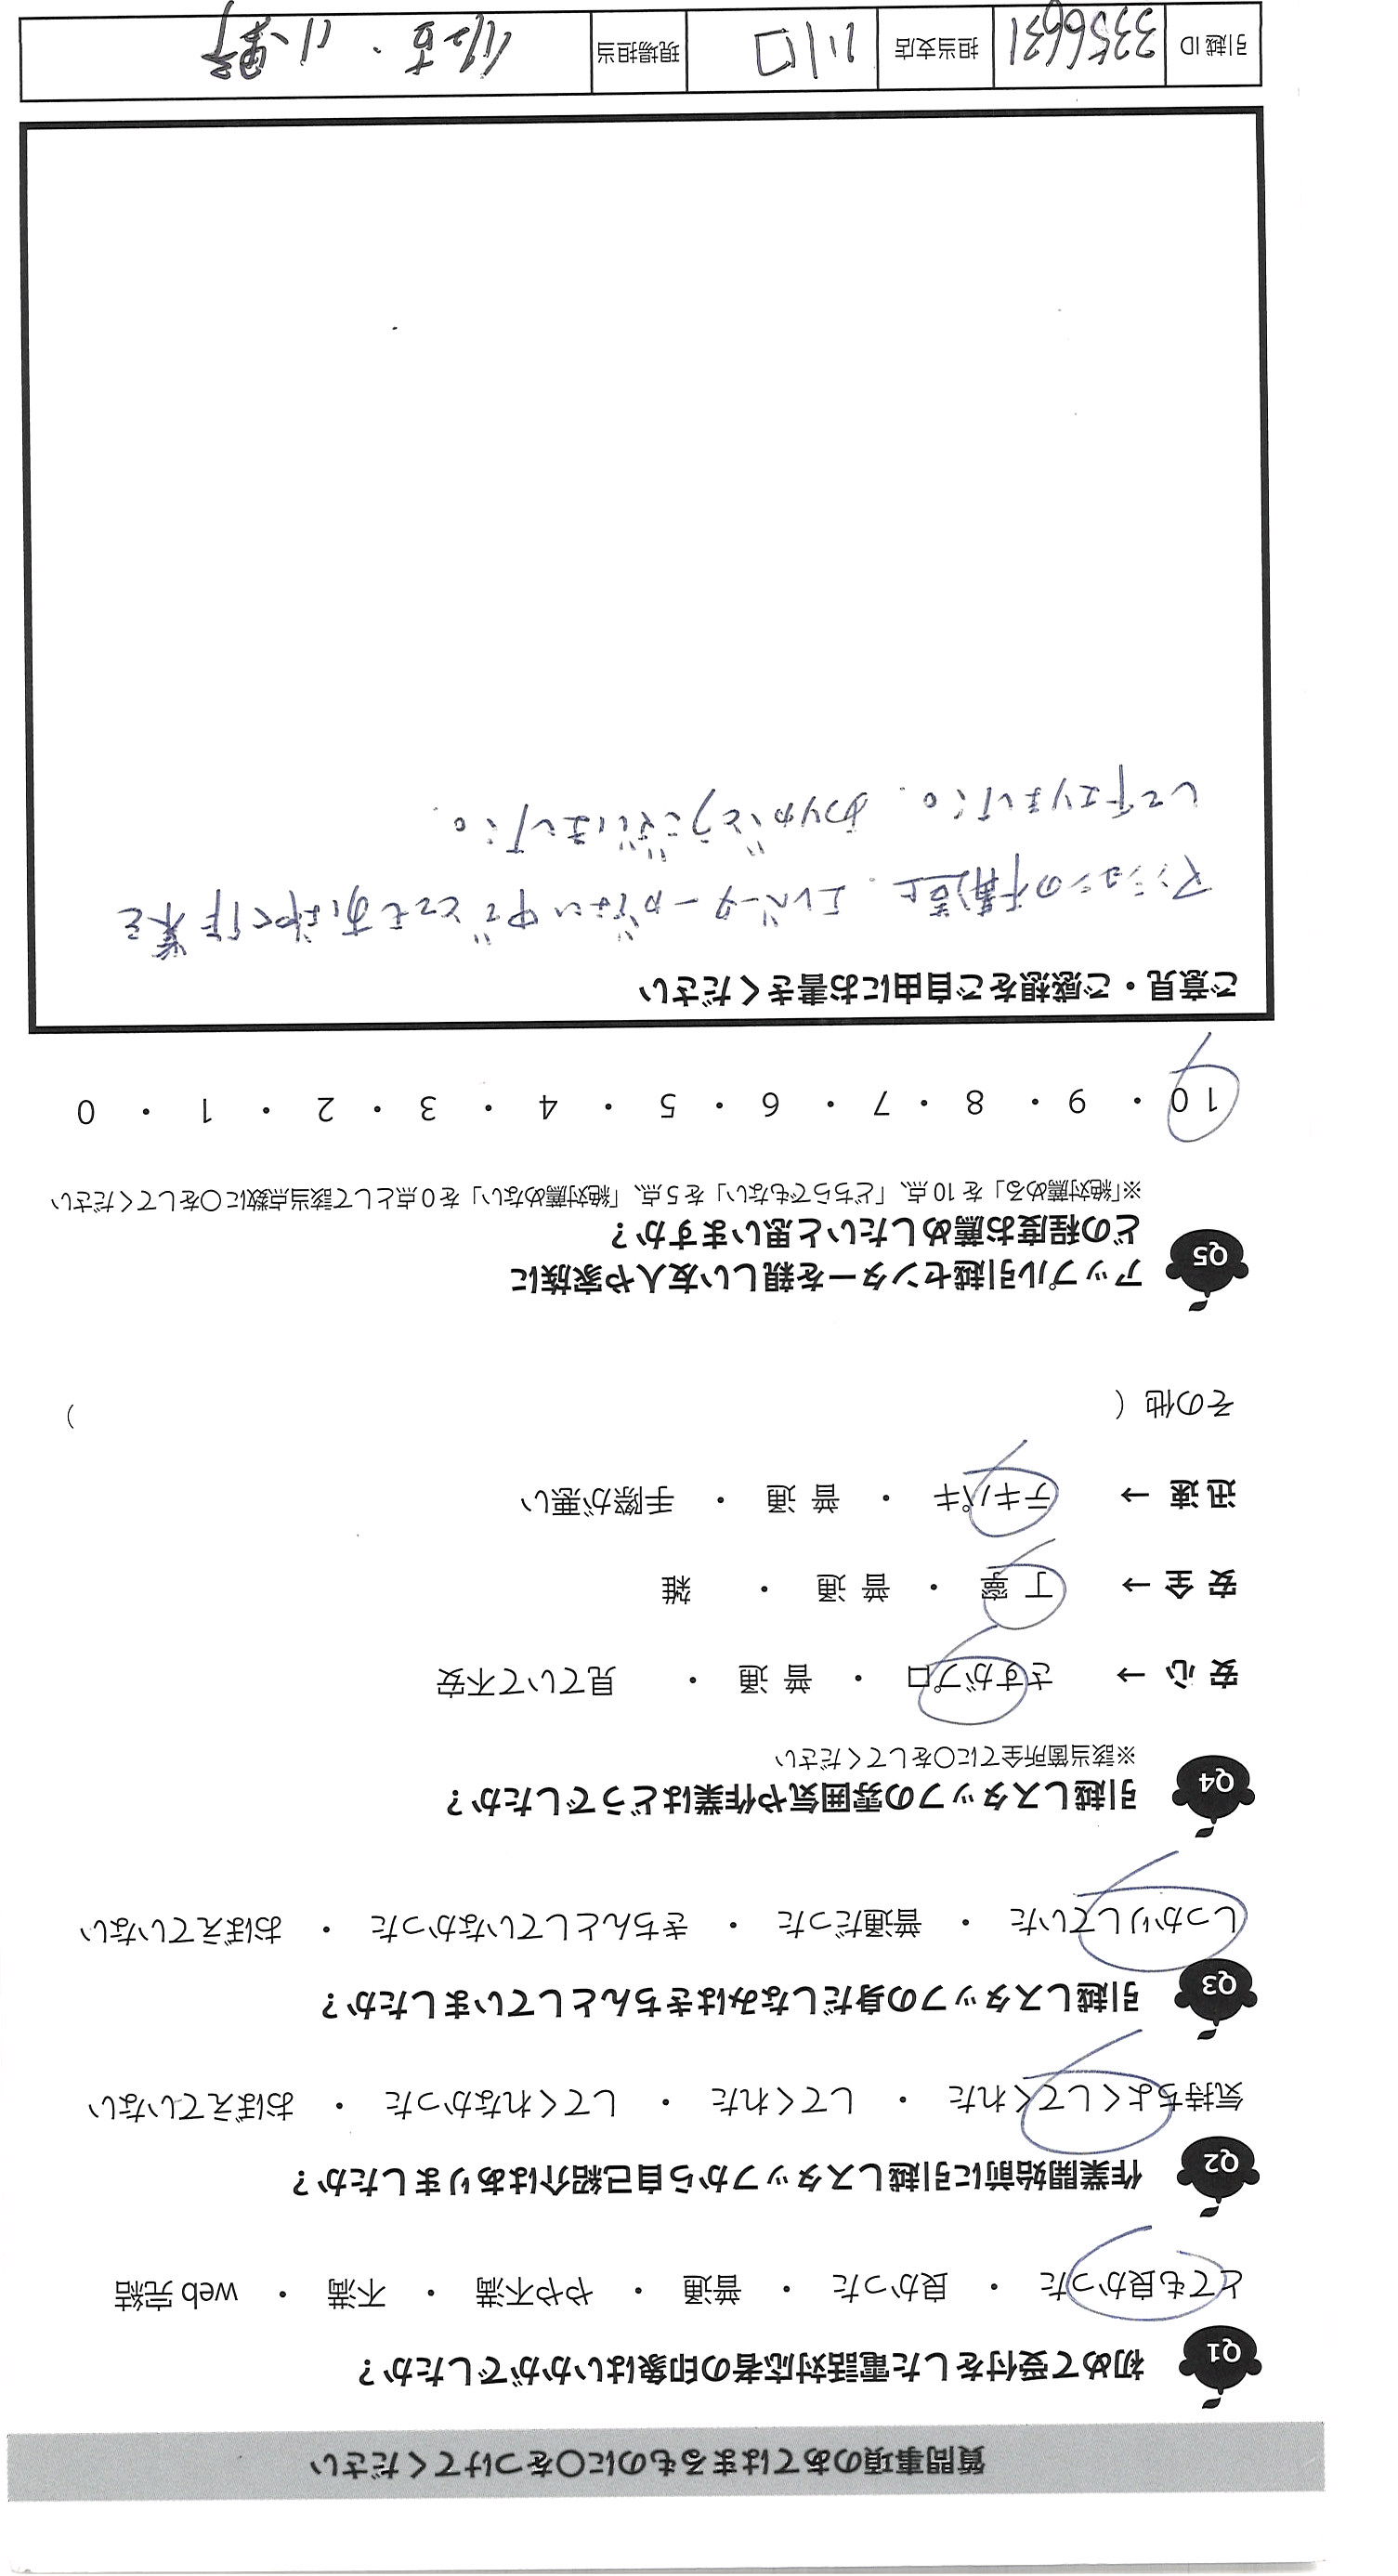 質問事項のあてはまるものに○をつけてください
Q1 初めて受付をした電話対応者の印象はいかがでしたか？
とても良かった ・ 良かった ・ 普通 ・ やや不満 ・ 不満 ・ web 完結
Q2 作業開始前に引越しスタッフから自己紹介はありましたか？
気持ちよくしてくれた ・ してくれた ・ してくれなかった ・ おぼえていない
Q3 引越しスタッフの身だしなみはきちんとしていましたか？
しっかりしていた ・ 普通だった ・ きちんとしていなかった ・ おぼえていない
Q4 引越しスタッフの雰囲気や作業はどうでしたか？
※該当箇所全てに○をしてください
安 心 → さすがプロ ・ 普 通 ・ 見ていて不安
安 全 → 丁 寧 ・ 普 通 ・ 雑
迅 速 → テキパキ ・ 普 通 ・ 手際が悪い
その他（ ）
Q5 アップル引越センターを親しい友人や家族に
どの程度お薦めしたいと思いますか？
※「絶対薦める」を 10 点、「どちらでもない」を 5 点、「絶対薦めない」を 0 点として該当点数に○をしてください
10 ・ 9 ・ 8 ・ 7 ・ 6 ・ 5 ・ 4 ・ 3 ・ 2 ・ 1 ・ 0
ご意見・ご感想をご自由にお書きください
マンションの構造上、エレベーターがない中でとてもすばやく作業を
して下さりました。ありがとうございました。
引越 ID 3356631 担当支店 川口 現場担当 ・ 小野